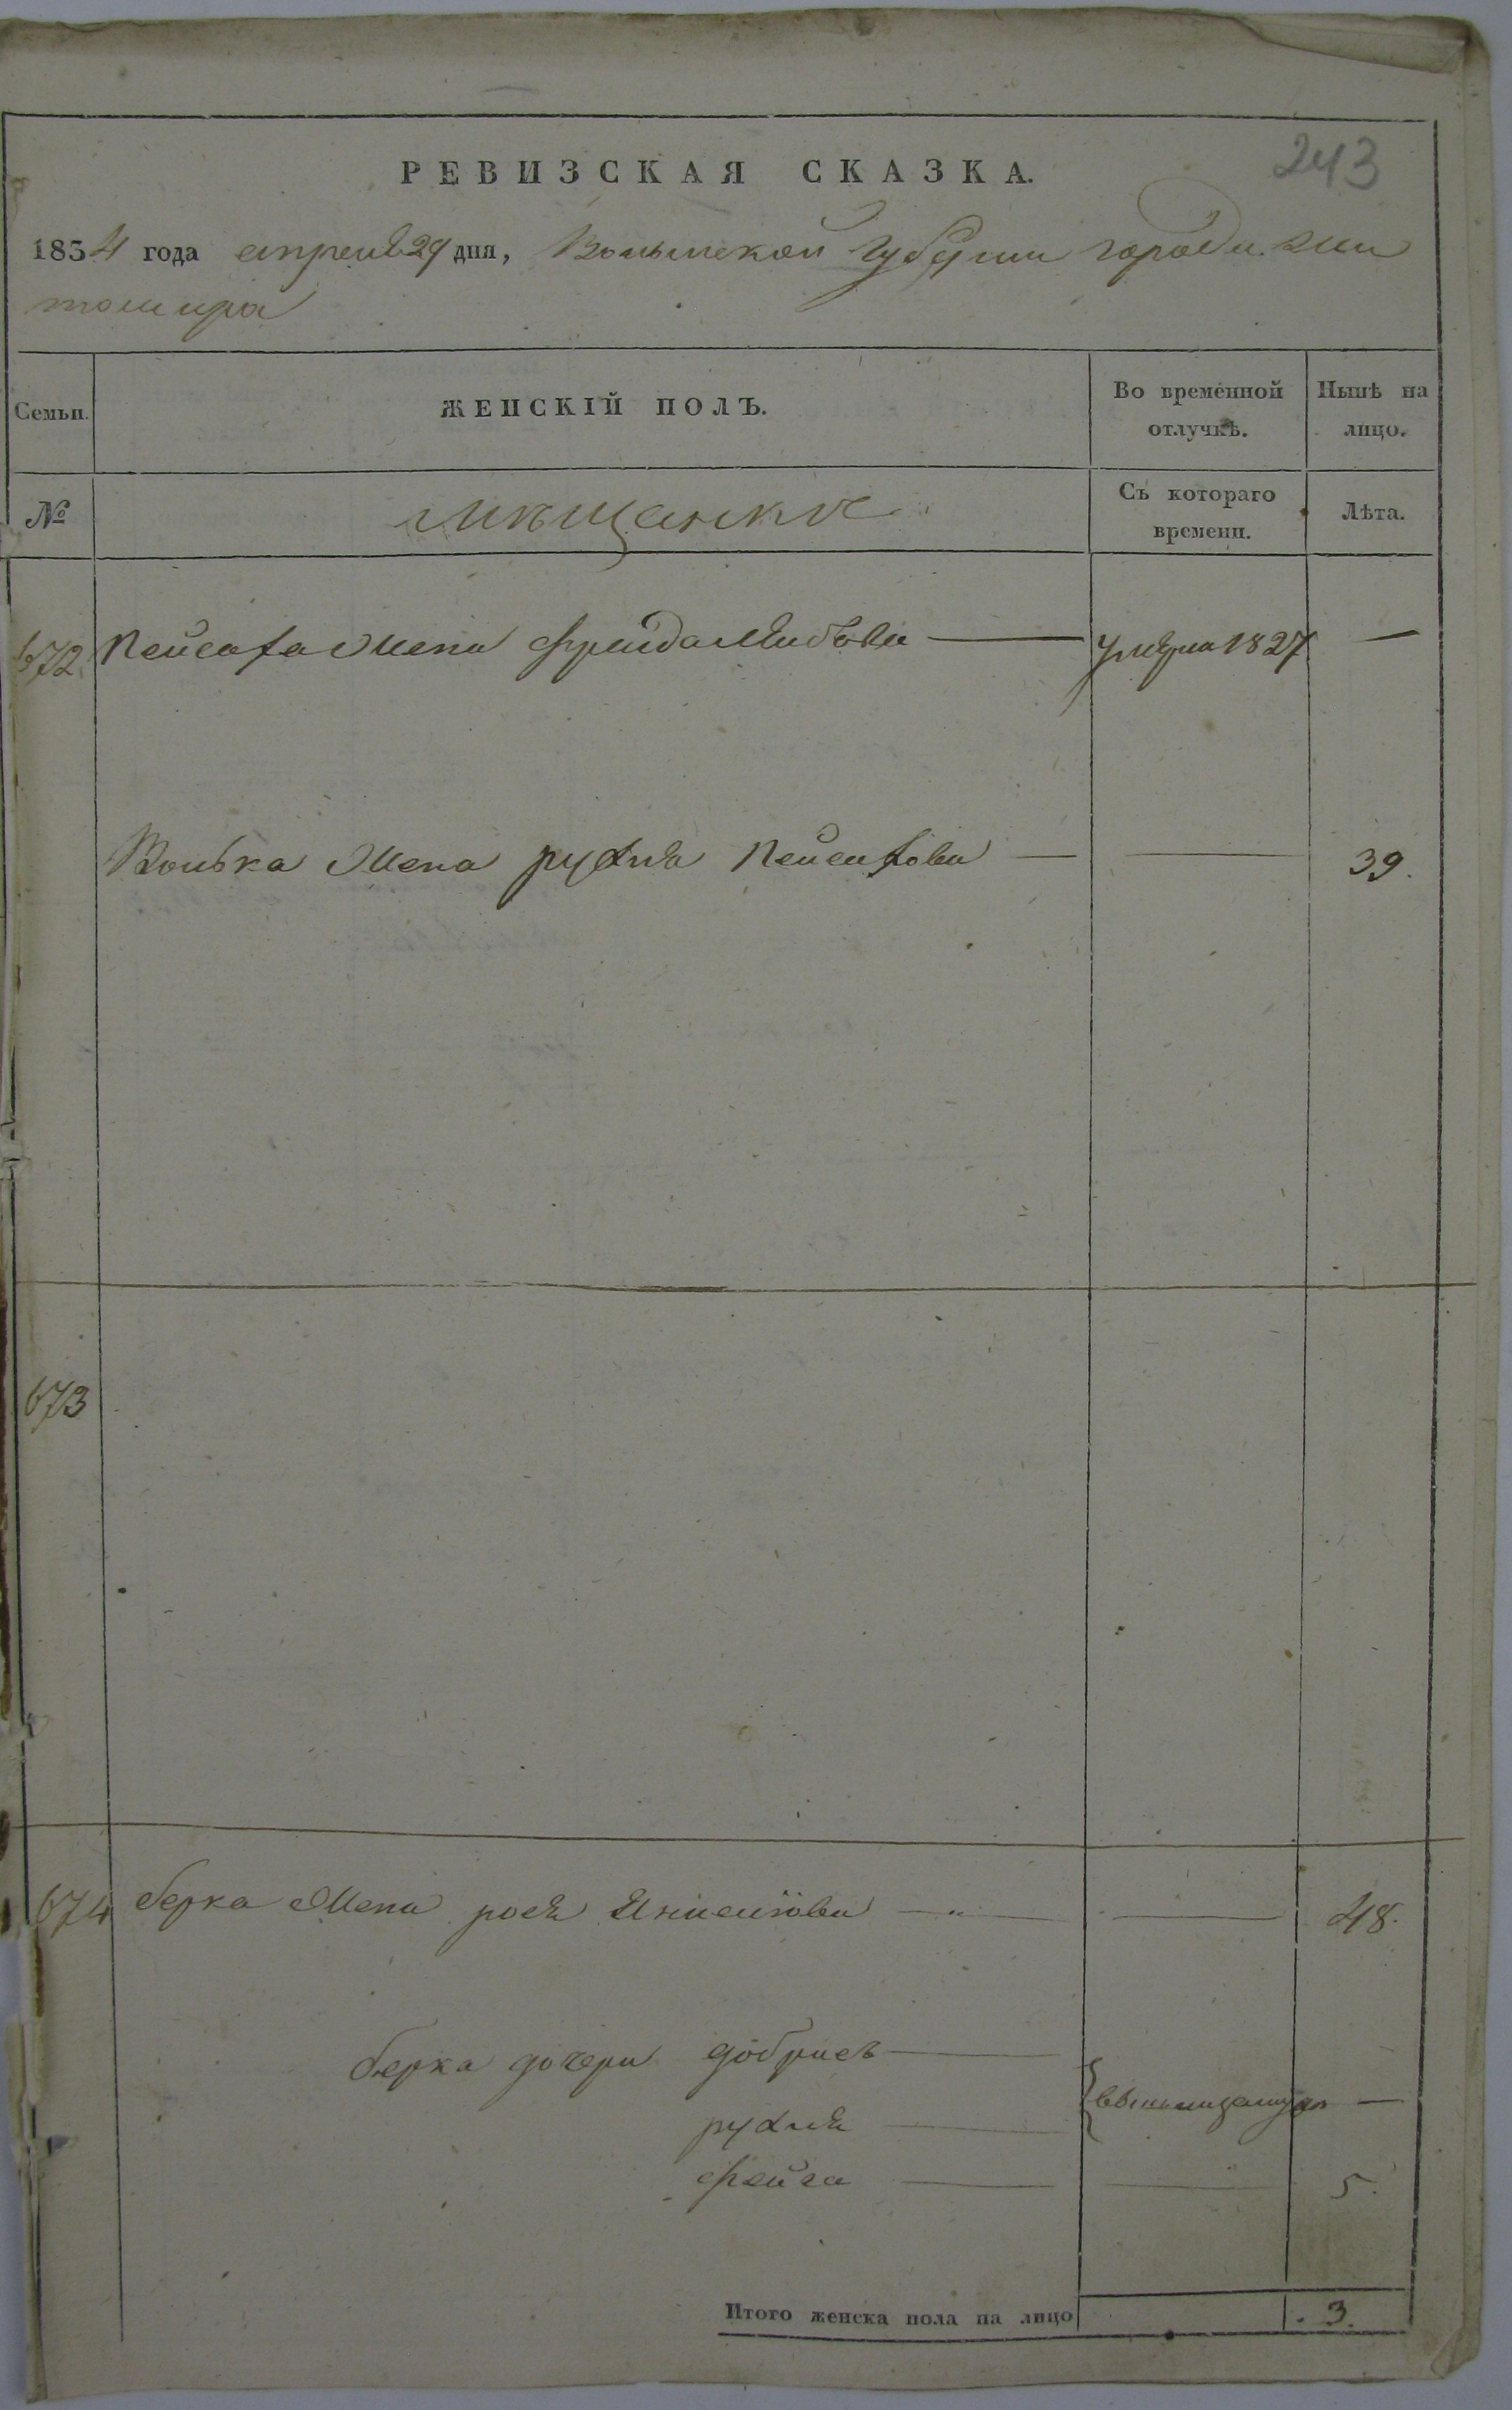 243
РЕВИЗСКАЯ СКАЗКА.
1834 года апреля 29 дня, Волынской Губернии города Жи
томира
Семьи. ЖЕНСКІЙ ПОЛЪ. Во временной отлучкѣ. Нынѣ на лицо.
№ мѣщанки Съ котораго времени. Лѣта.
672 Пейсаха Жена Фрейда Лейбова — умерла 1827 —
Волька Жена рухля Пейсахова — — 39.
673
674 берка Жена рося — — 48.
берка дочери добрисъ —
рухля — вышли замужъ —
фейга — — 5.
Итого женска пола на лицо 3.